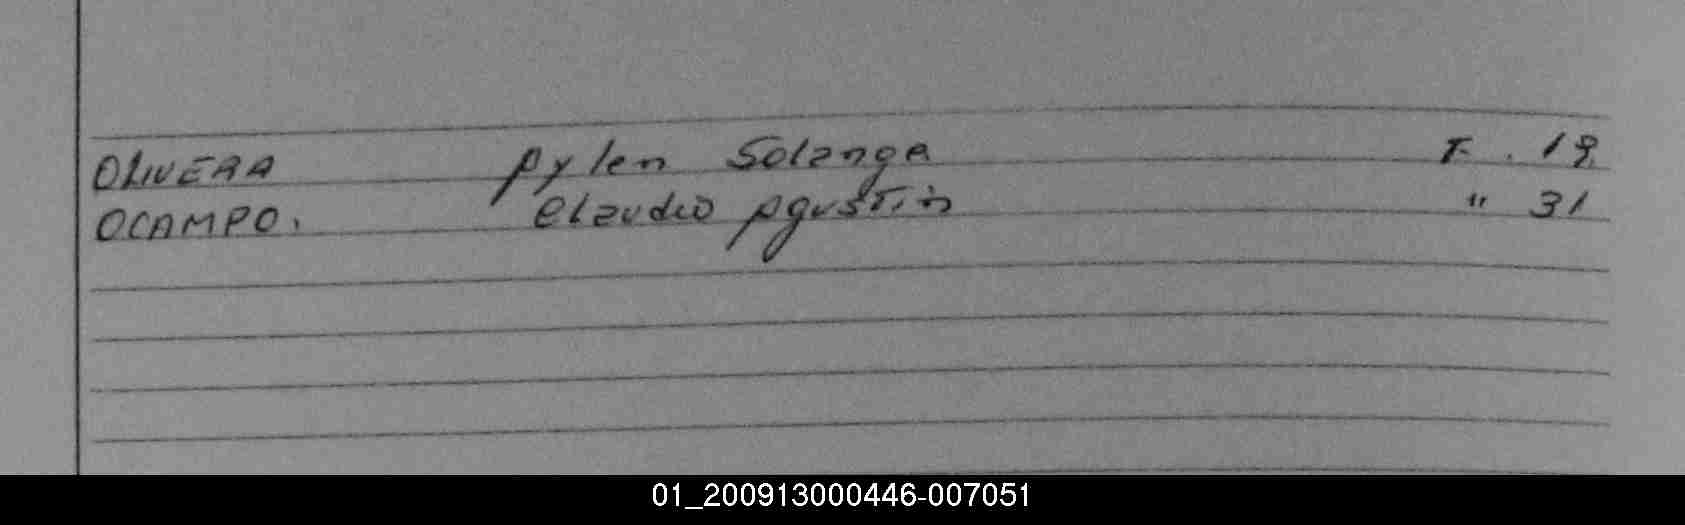 OLIVERA Aylen Solange F. 19
OCAMPO. Claudio Agustin " 31
01_200913000446-007051